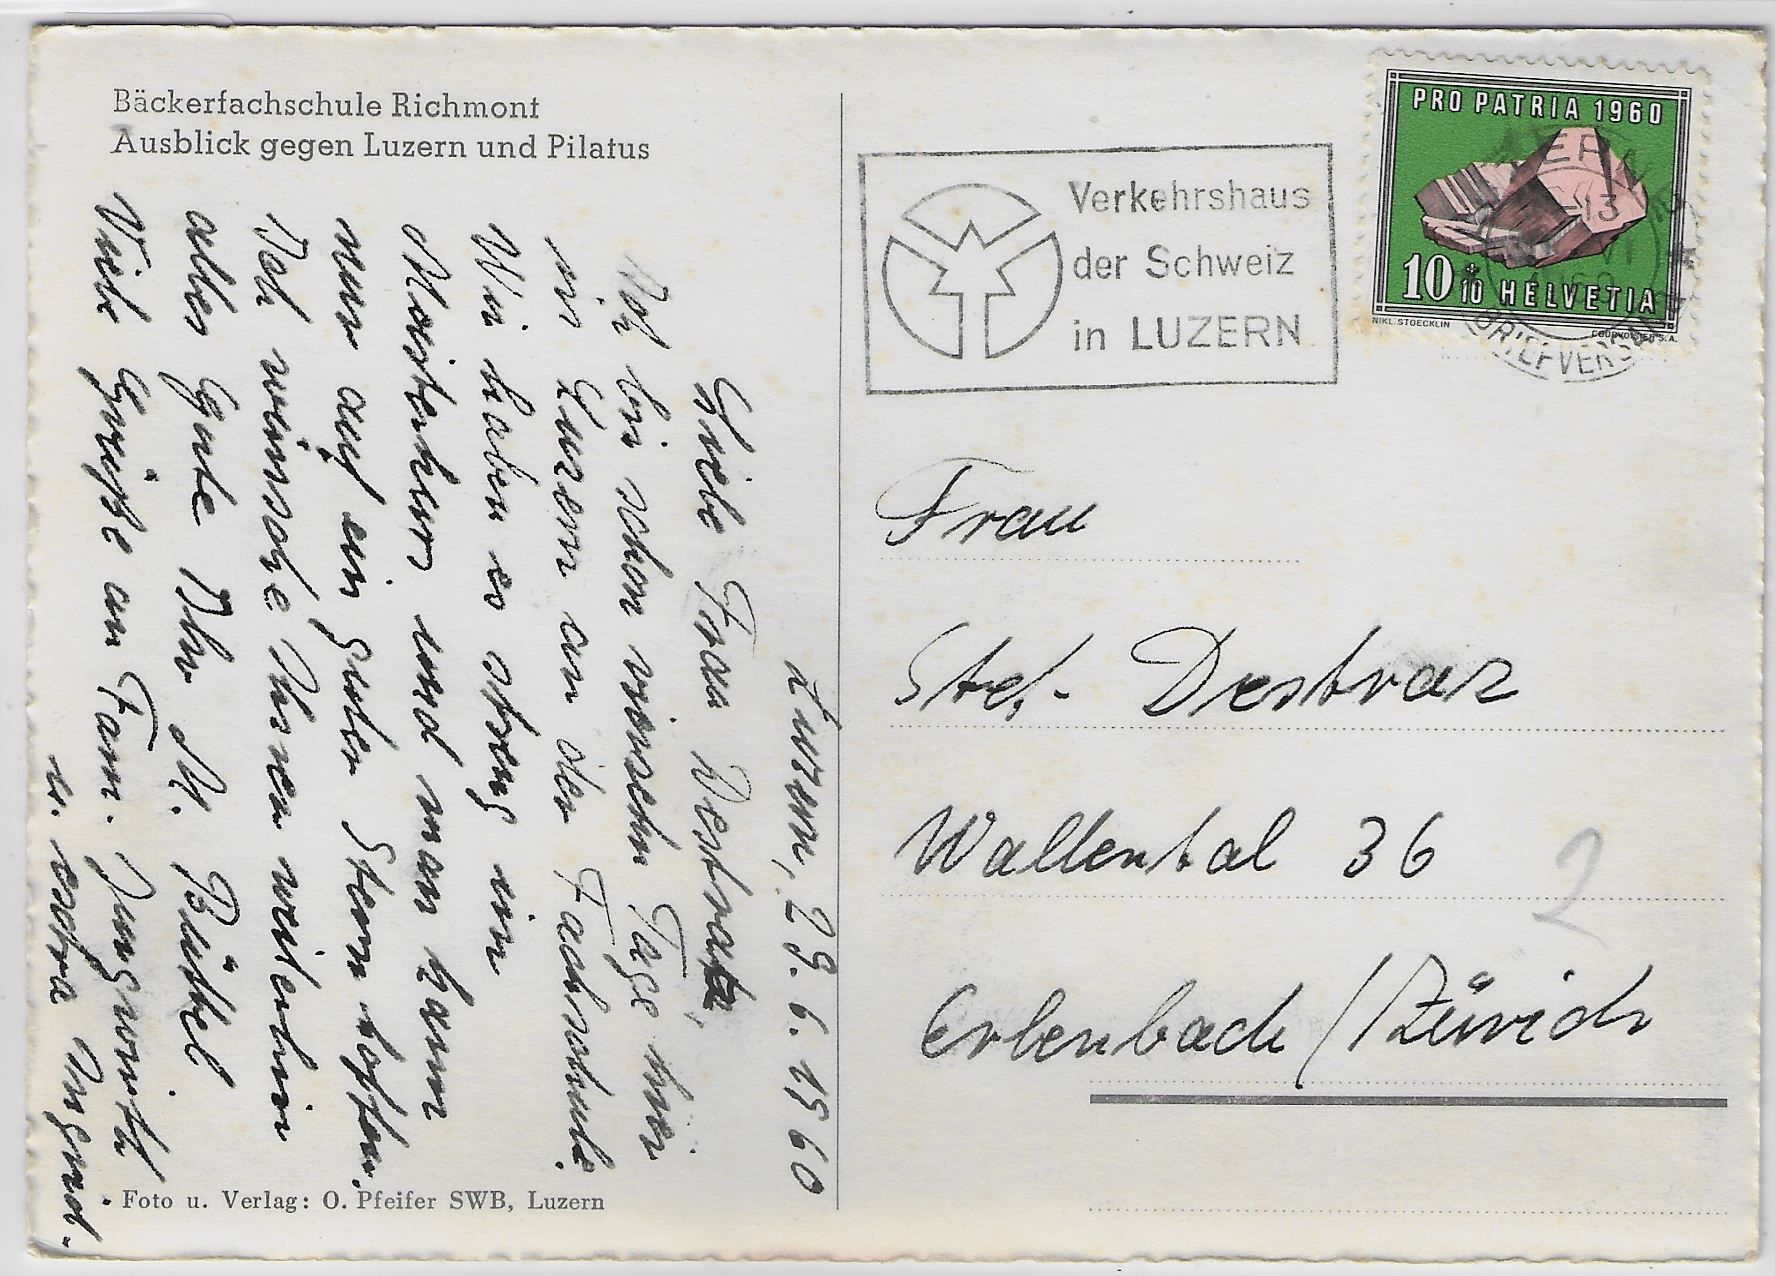 Bäckerfachschule Richmont
Ausblick gegen Luzern und Pilatus
Luzern, 29.6.1960
Frau Destraz,
Ich bin schon vierzehn Tage hier
in Luzern an der Fachschule
Wir haben es streng im
und man kann
nur auf ein guter Stern hoffen.
Ich wünsche Ihnen weiterhin
alles Gute Ihr M.
Viele Grüße an Fam.
u. extra
Foto u. Verlag: O. Pfeifer SWB, Luzern
Verkehrshaus
der Schweiz
in LUZERN
PRO PATRIA 1960
10+10 HELVETIA
NIKL. STOECKLIN
COURVOISIER S.A.
-13
BRIEFVERSAND
Frau
Stef. Destraz
Wallental 36
2
Erlenbach / Zürich